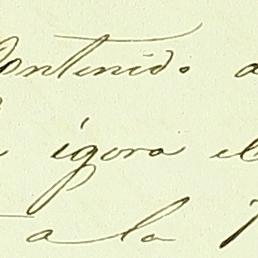 Contenido a
igora el
a la